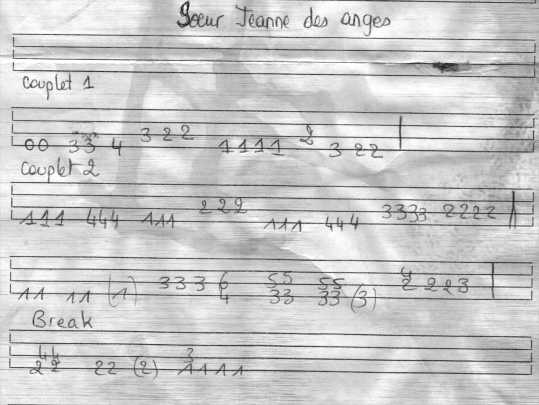 Sœur Jeanne des anges
Couplet 1
00 33 4 3 2 2 1111 2 3 22
Couplet 2
111 444 111 222 111 444 3333 2222
11 11 (1) 333 6 55 55 4
4 33 33 (3) 2 2 2 3
Break
44 3
22 22 (2) 1111